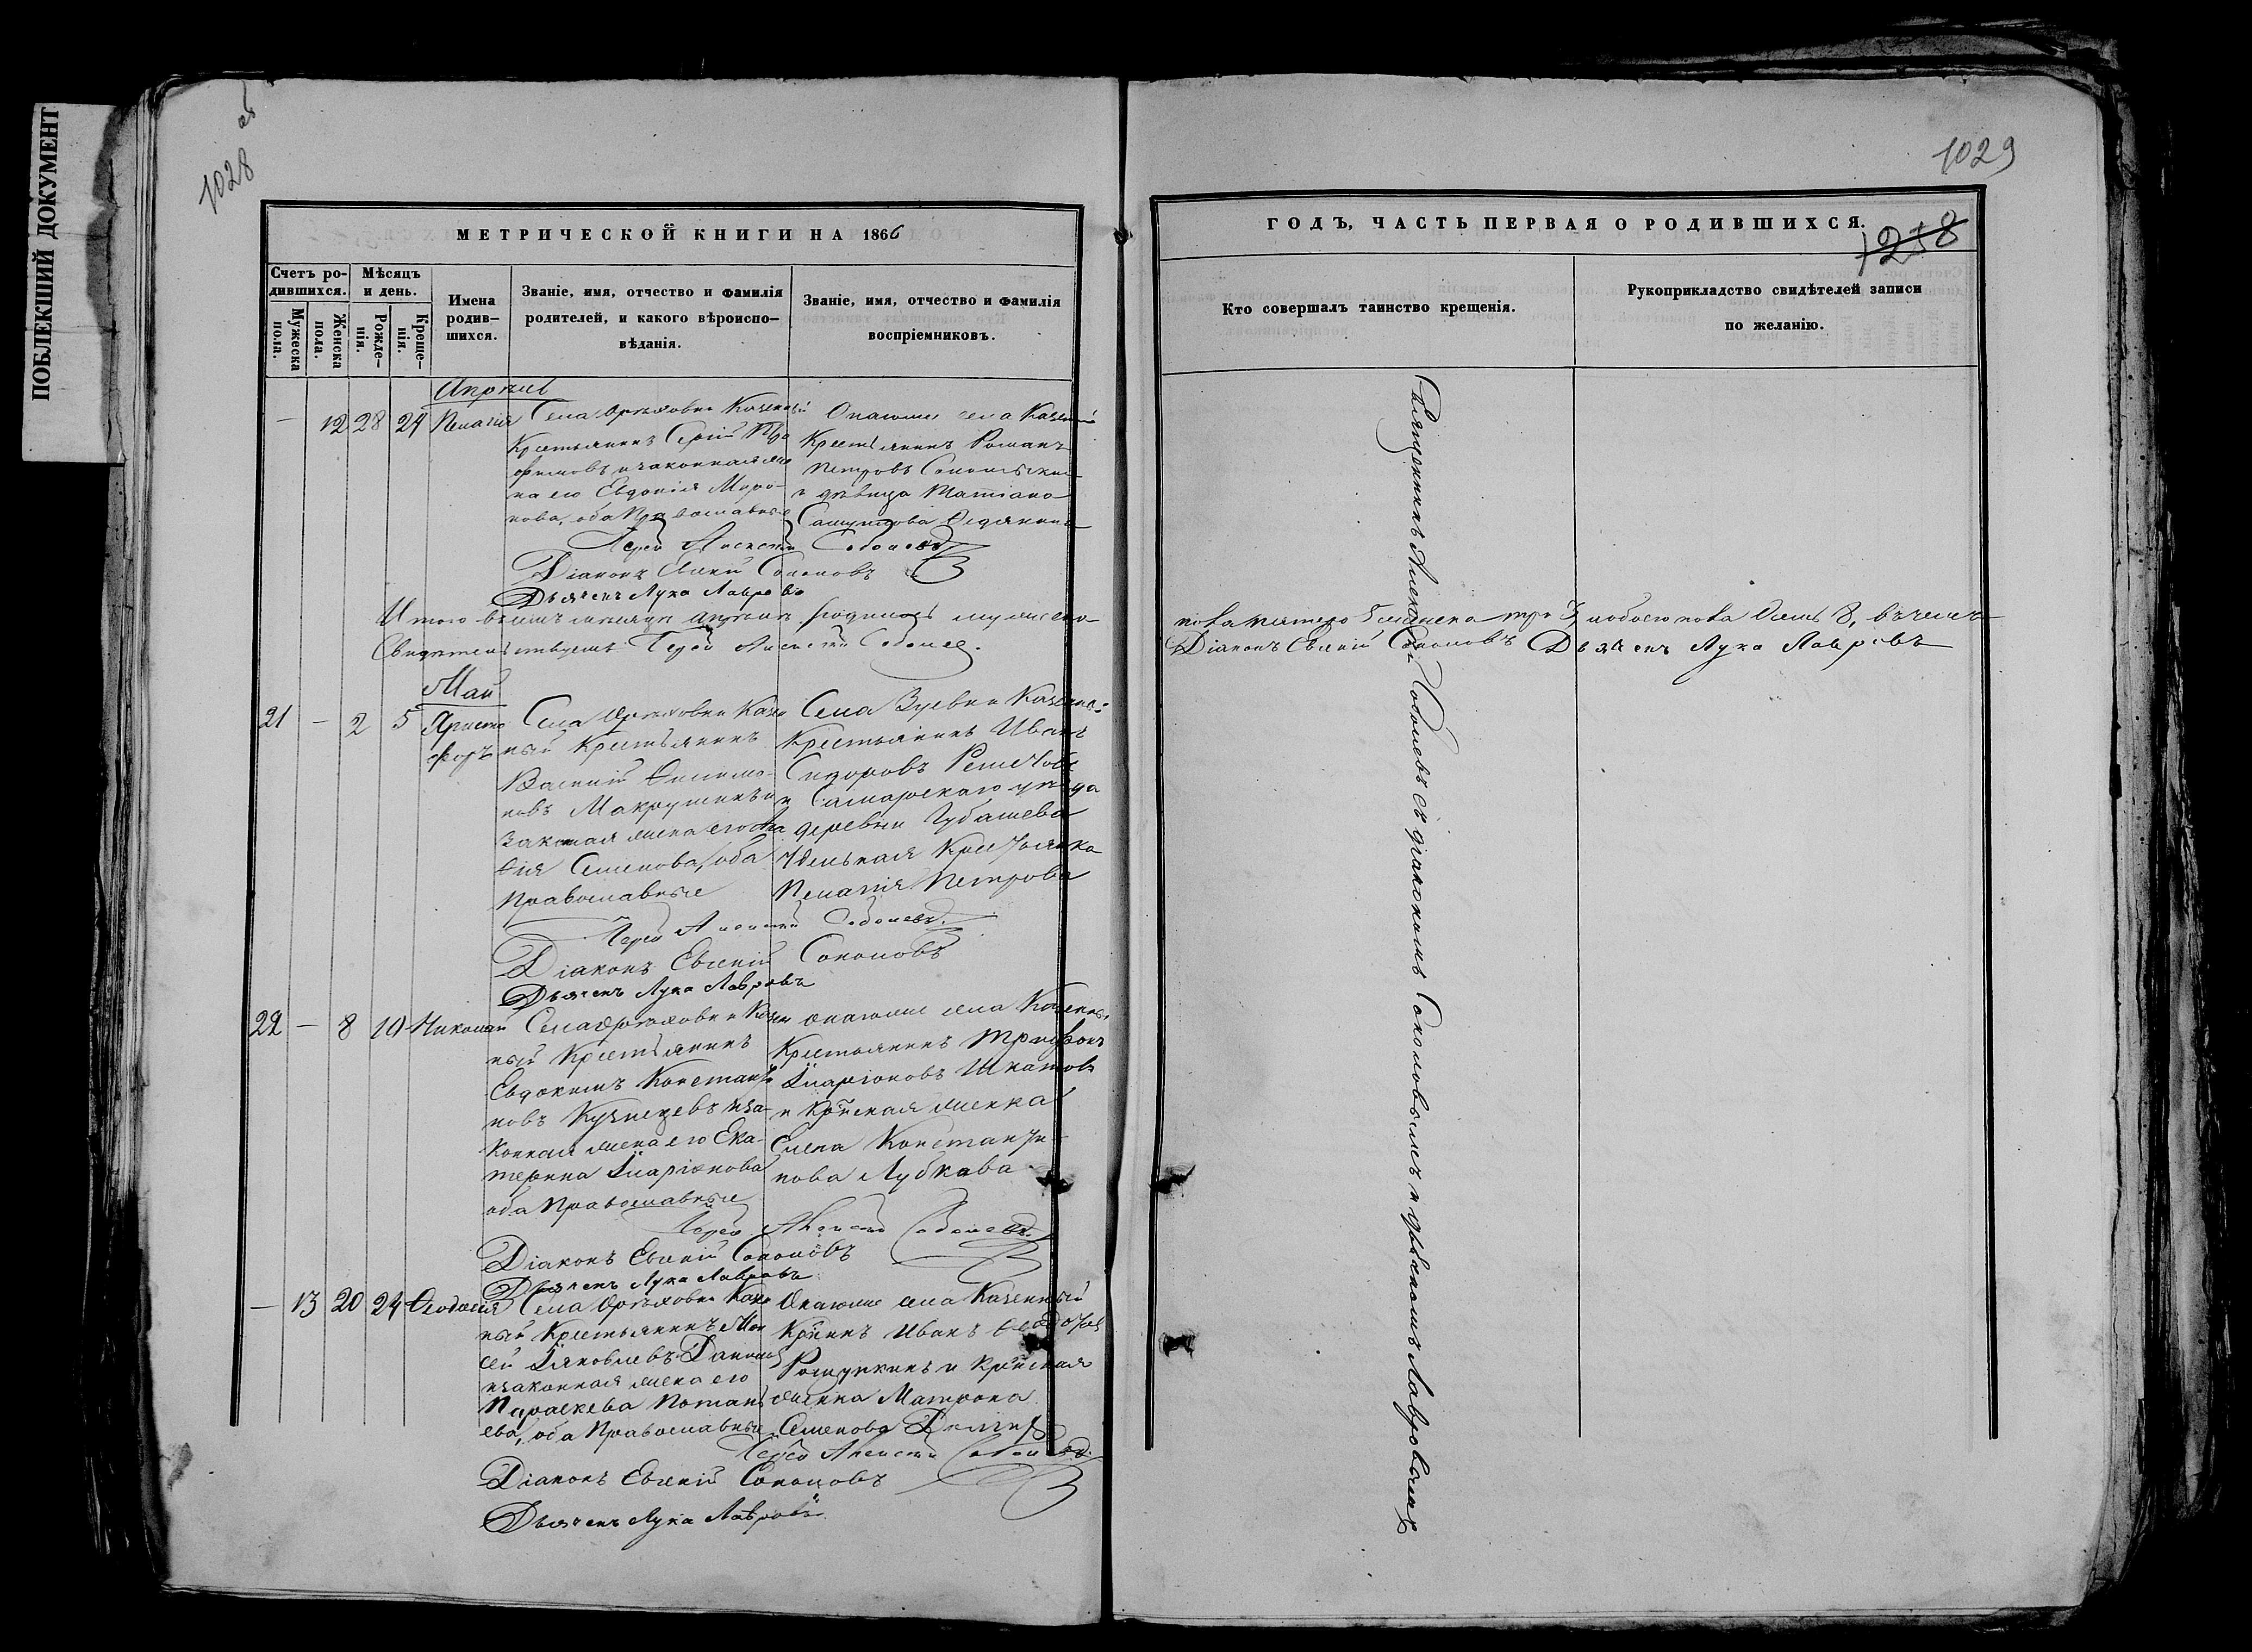 ПОБЛЕКШИЙ ДОКУМЕНТ
1028 об
МЕТРИЧЕСКОЙ КНИГИ НА 1866
Счетъ ро-
дившихся.
Мужеска
пола.
Женска
пола.
Мѣсяцъ
и день.
Рожде-
нія.
Креще-
нія.
Имена
родив-
шихся.
Званіе, имя, отчество и фамилія
родителей, и какого вѣроиспо-
вѣданія.
Званіе, имя, отчество и фамилія
воспріемниковъ.
Апрѣль
— 12 28 24 Пелагія
Села Орѣховки Казенный
Крестьянинъ Сергій Тро
фимовъ и законная же
на его Евдокія Миро-
нова, оба Православные
Онаго же села Казенный
Крестьянинъ Романъ
Петровъ
и дѣвица Татіана
Іерей Алексій Соболевъ
Діаконъ Евгеній Соколовъ
Дьячекъ Лука Лавровъ
Итого въ семъ мѣсяцѣ Апрѣлѣ родилось мужеска
Свидѣтельствуемъ Іерей Алексій Соболев.
Май
21 — 2 5 Христо
форъ
Села Орѣховки Казен
ный Крестьянинъ
Василій Филимо-
новъ Макрушинъ и
законная жена его
Семенова, оба
Православные
Села Зуевки Казенной
Крестьянинъ Иванъ
Сидоровъ
и Самарскаго уѣзда
деревни Губашева
Удельная Крестьянка
Пелагія Петрова
Іерей Алексій Соболевъ.
Діаконъ Евгеній Соколовъ
Дьячекъ Лука Лавровъ
22 — 8 10 Николай
Села Орѣховки Казен
ный Крестьянинъ
Евдокимъ Константи
новъ Кузнецевъ и за-
конная жена его Ека-
терина Иларіонова
оба Православные
Онаго же села Казенны.
Крестьянинъ Трифонъ
Иларіоновъ Шкатовъ
и Кр̃нская женка
Елена Константи-
нова Лубкава
Іерей Алексій Соболевъ.
Діаконъ Евгеній Соколовъ
Дьячекъ Лука Лавровъ
— 13 20 24 Ѳеодосія
Села Орѣховки Казен
ный Крестьянинъ Мои
сей Іаковлевъ Данилов
и законная жена его
Параскева Потапь
ева, оба Православные
Онаго же села Казенный
Кр̃нинъ Иванъ Ѳеодотов
и Кр̃нская
женка Матрона
Семенова
Іерей Алексій Соболевъ.
Діаконъ Евгеній Соколовъ
Дьячекъ Лука Лавровъ
1029
ГОДЪ, ЧАСТЬ ПЕРВАЯ О РОДИВШИХСЯ.
1258
Кто совершалъ таинство крещенія.
Рукоприкладство свидѣтелей записи
по желанію.
Священникъ Алексій Соболевъ съ діакономъ Соколовымъ и дьячкомъ Лавровымъ
пола пятеро 5 женска три 3, и обоего пола Осмь 8, въ чемъ
Діаконъ Евгеній Соколовъ Дьячекъ Лука Лавровъ